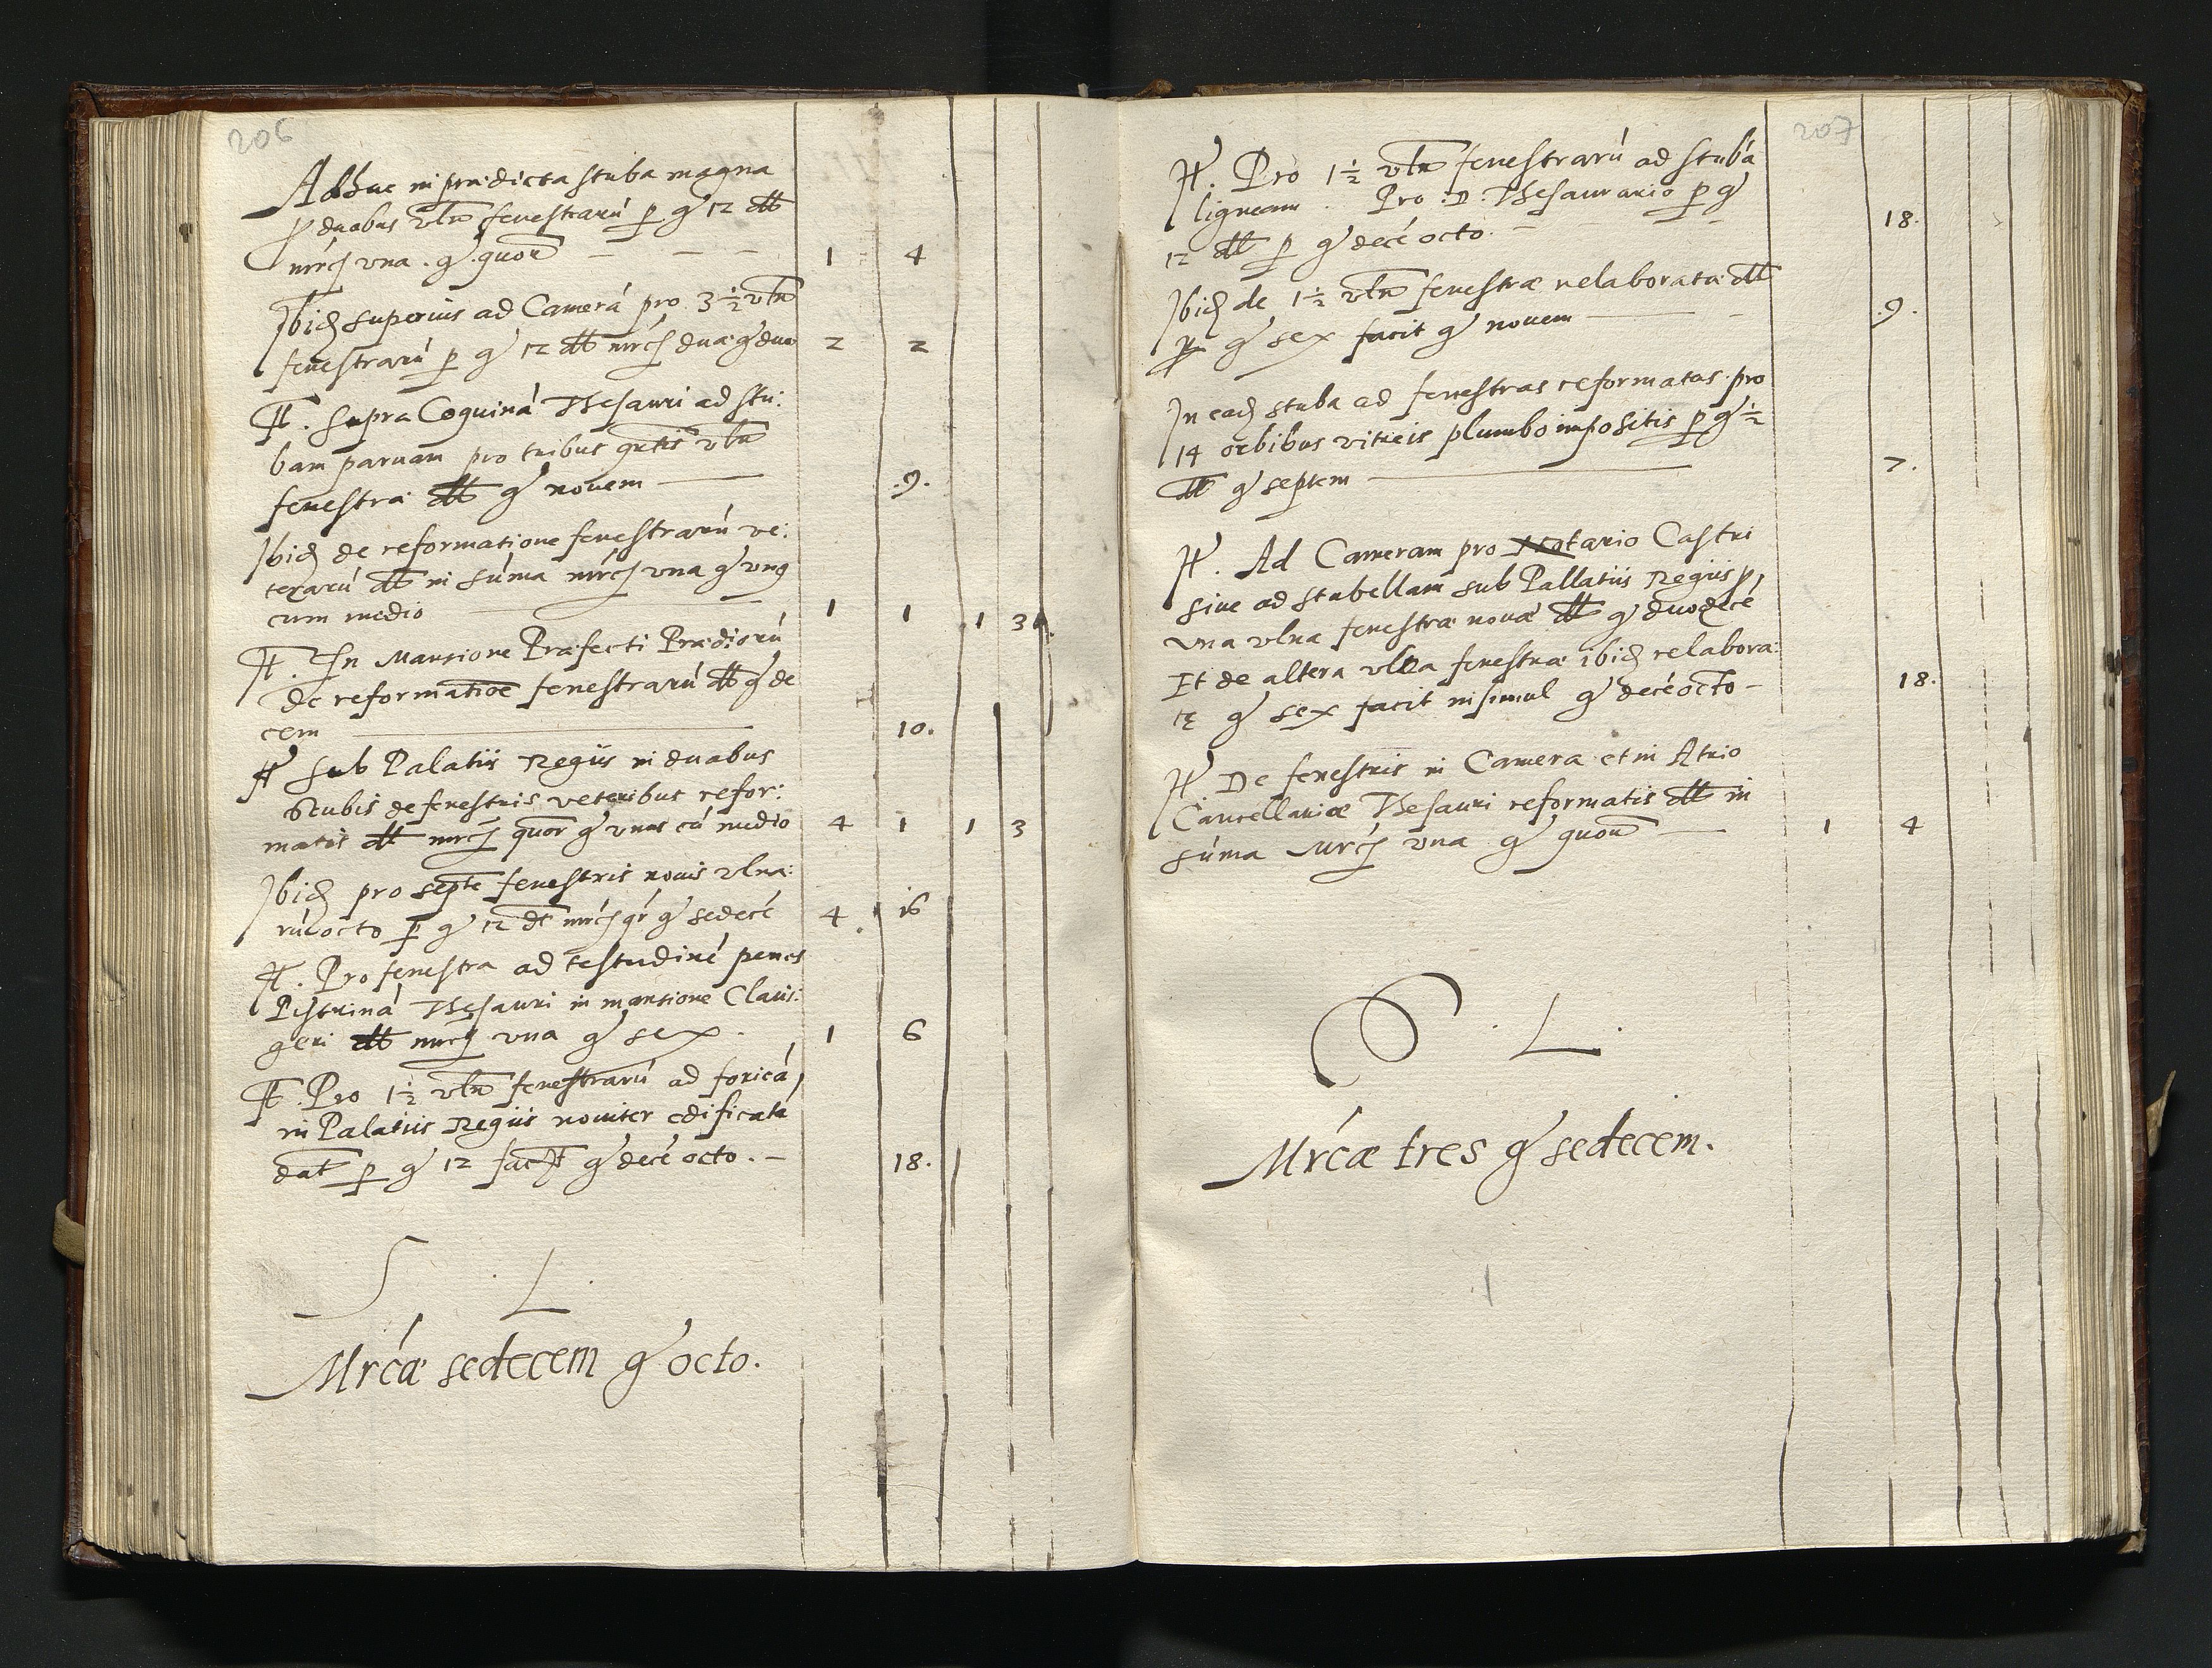 206
Adhuc in prædicta stuba magna
p duabus vln fenestrarú p gr 12 dtt
mrcis vna . gr quor — — — 1 4
Ibid superius ad Camerá pro 3½ vln
fenestrarú p gr 12 dtt mrcis duæ gr duo 2 2
It. Supra Coquiná Thesauri ad stu:
bam paruam pro tribus qrtis vln
fenestræ dtt gr nouem — .9.
Ibid de reformatione fenestrarú ve:
terarú dtt in súma mrcis vna gr vnq
cum medio 1 1 1 3
It. In Mansione Præfecti Prædiorú
de reformatioe fenestrarú dtt gr de
cem — 10.
It Sub Palatiis Regiis in duabus
Stubis de fenestris veteribus refor:
matis dtt mrcis quor gr vnus cú medio 4 1 1 3
Ibid pro septe fenestris nouis vlna:
rú octo p gr 12 dt mrcis qr gr sedecé 4 16
It. Pro fenestra ad testudiné penes
Pistriná Thesauri in mansione Claui:
geri dtt mrcis vna gr sex . 1 6
It. Pro 1½ vln fenestrarú ad foricá,
in Palatiis Regiis nouiter edificatá
dat p gr 12 facit gr decé octo . — 18.
S . L .
Mrcæ sedecem gr octo.
207
It. Pro 1½ vln fenestrarú ad stubá
ligneam . Pro .D. Thesaurario p gr
12 dtt p gr decé octo — 18.
Ibid de 1½ vln fenestræ relaboratæ dtt
p gr sex facit gr nouem — .9.
In ead stuba ad fenestras reformatas pro
14 orbibus vitreis plumbo impositis p gr ½
dtt gr septem — 7.
It. Ad Cameram pro Notario Castri
siue ad stubellam sub Pallatiis Regiis p,
vna vlna fenestræ nouæ dtt gr duodecé
Et de altera vlna fenestræ ibid relabora:
tę gr sex facit insimul gr decé octo — 18.
It. De fenestris in Camera et in Atrio
Cancellariæ Thesauri reformatis dtt in
súma Mrcis vna gr quor — 1 4
S . L .
Mrcæ tres gr sedecem.